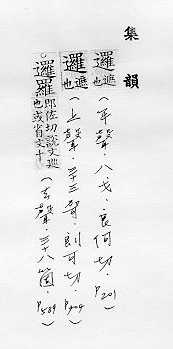 集韻
邏遮也（平聲·八戈·良何切·P201）
邏遮也（上聲·三十三哿·朗可切·P404）
邏羅郎佐切說文巡也或省文十（去聲·三十八箇·P589）